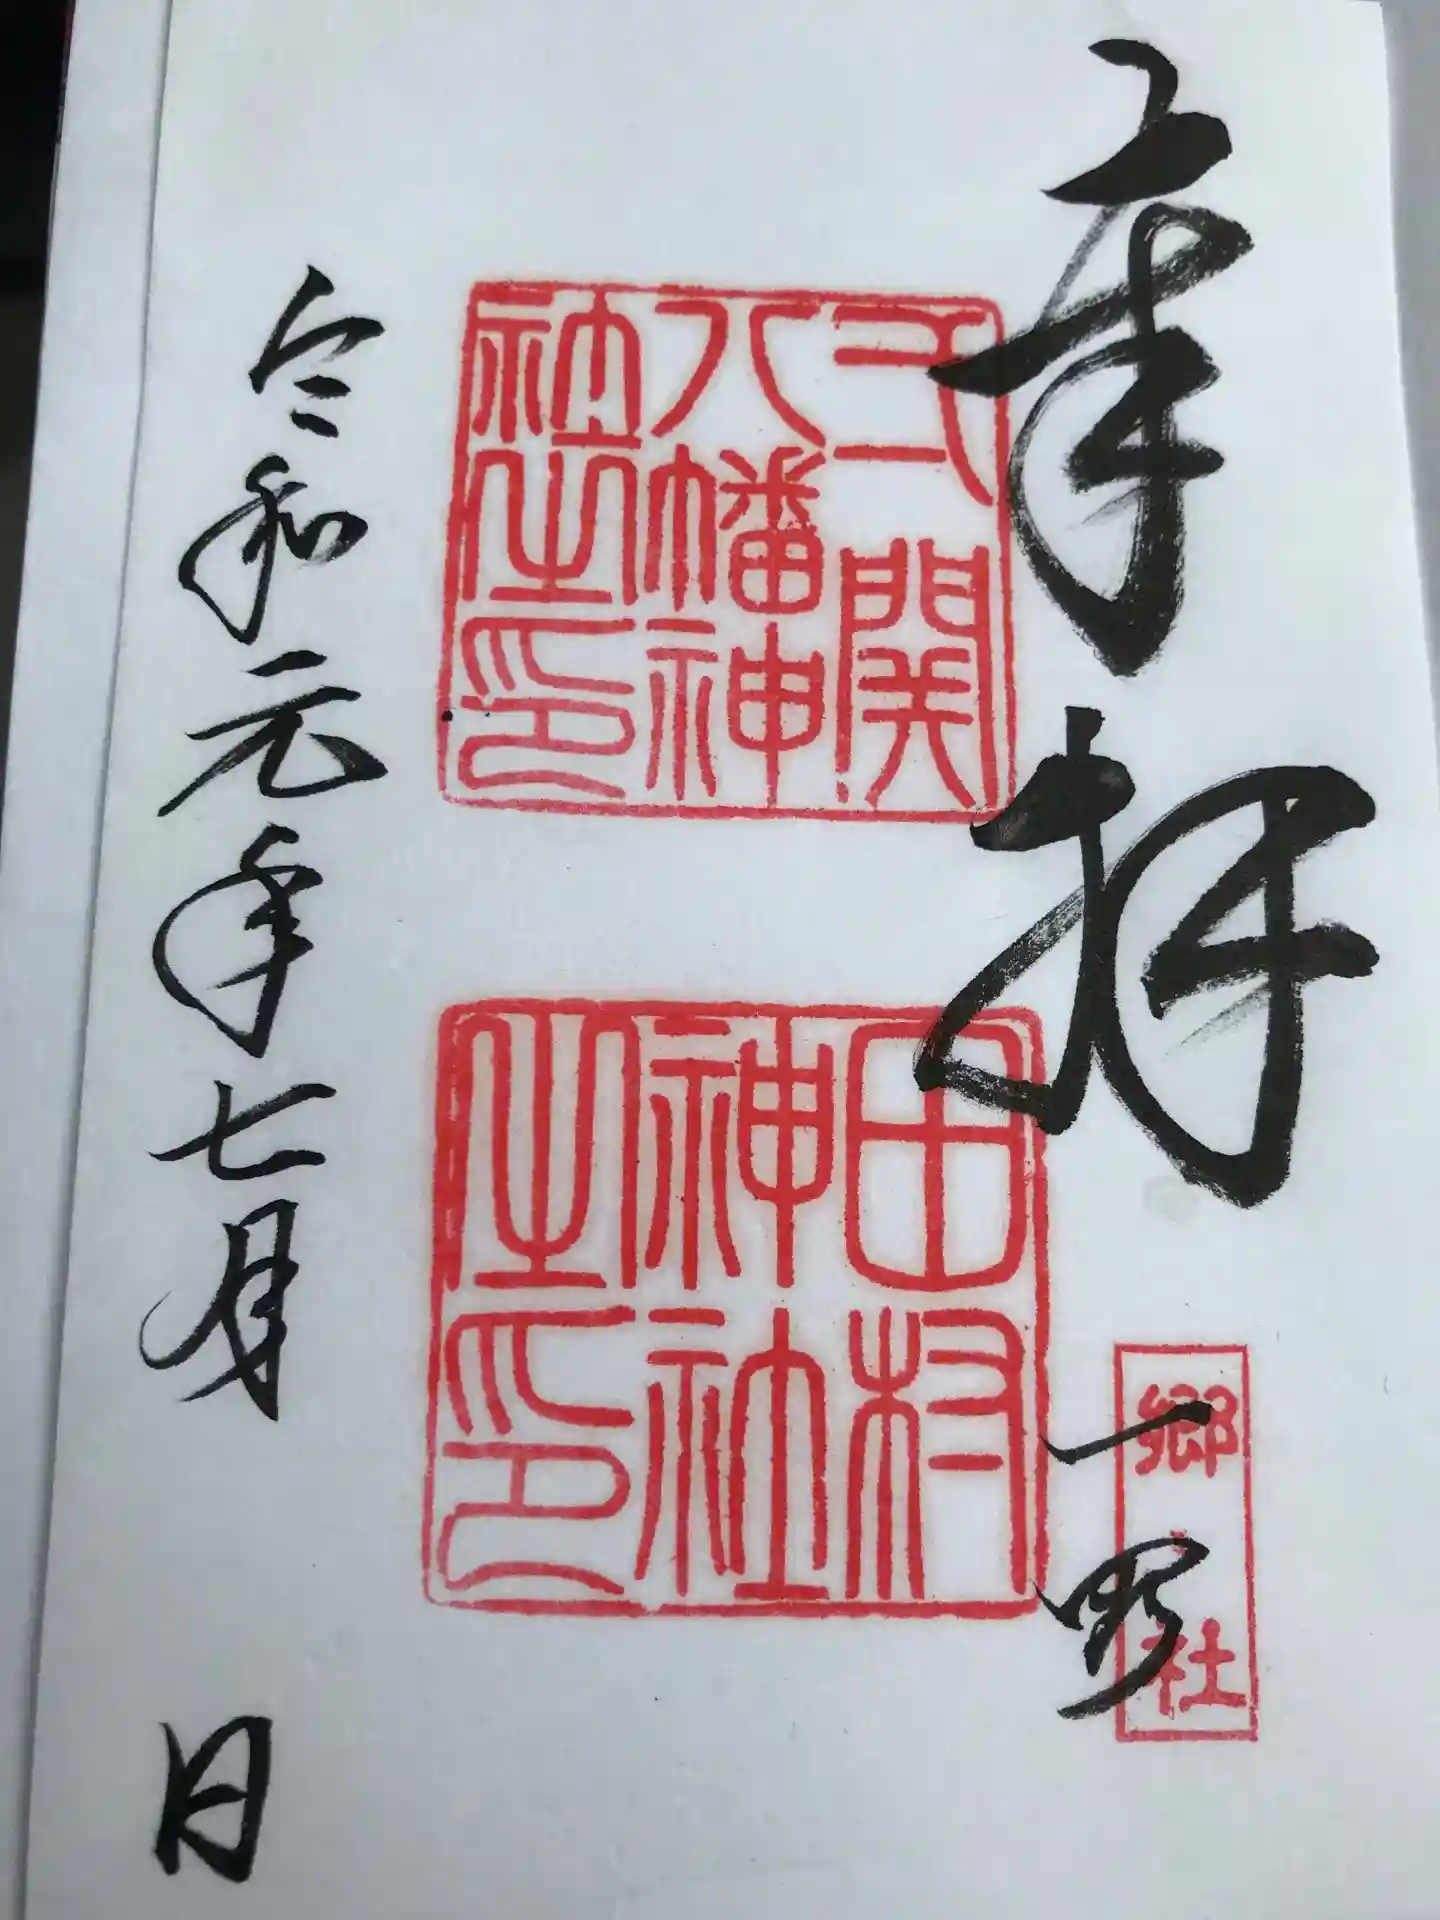 奉拝
郷社
一関
弌関八幡神社之印
田村神社之印
令和元年七月 日